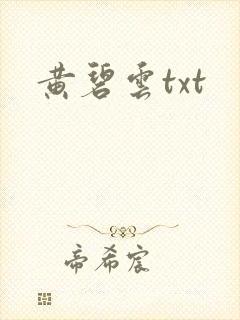 黄碧雲txt
帝希宸